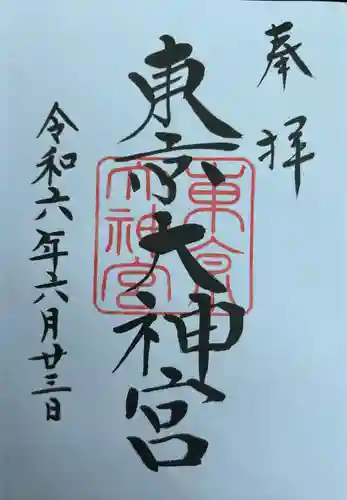 奉拝
東京大神宮
東京大神宮
令和六年六月廿三日